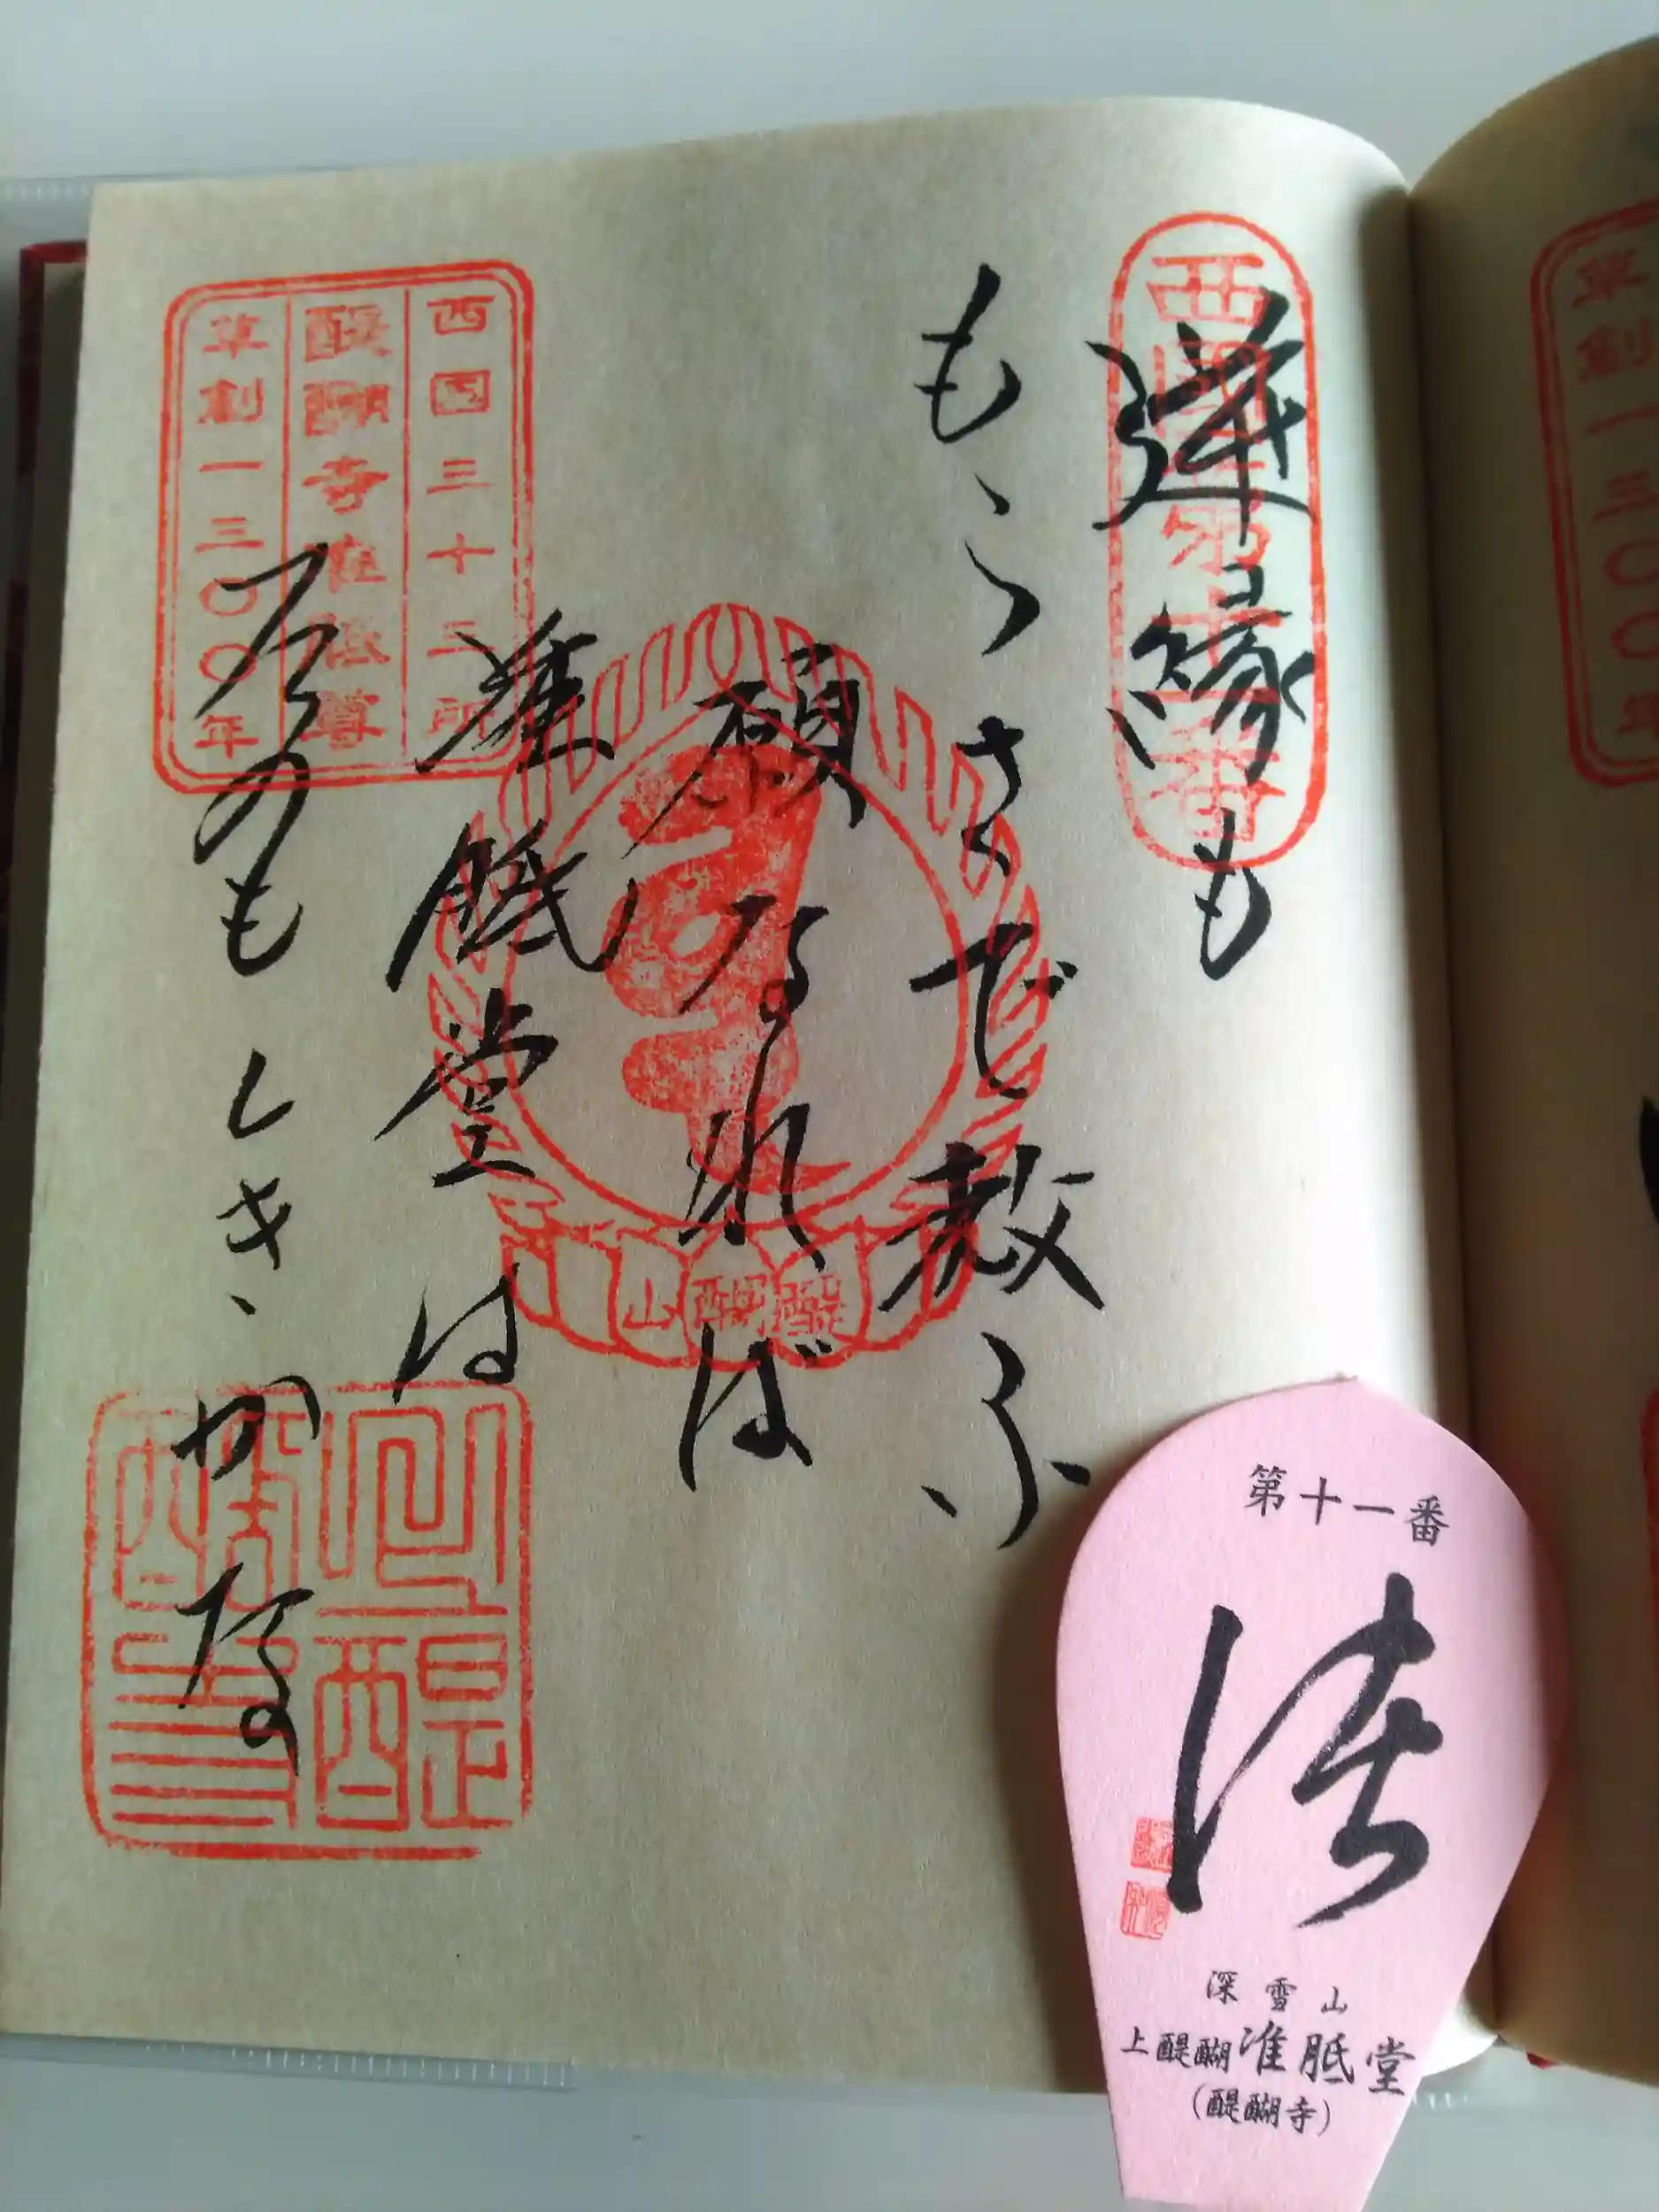 西国第十一番
逆縁も
もらさで救ふ
願なれば
准胝堂は
たのもしきかな
西国三十三所
醍醐寺
草創一三〇〇年
醍醐山
第十一番
法
深雪山
上醍醐准胝堂
(醍醐寺)
草創一三〇〇年